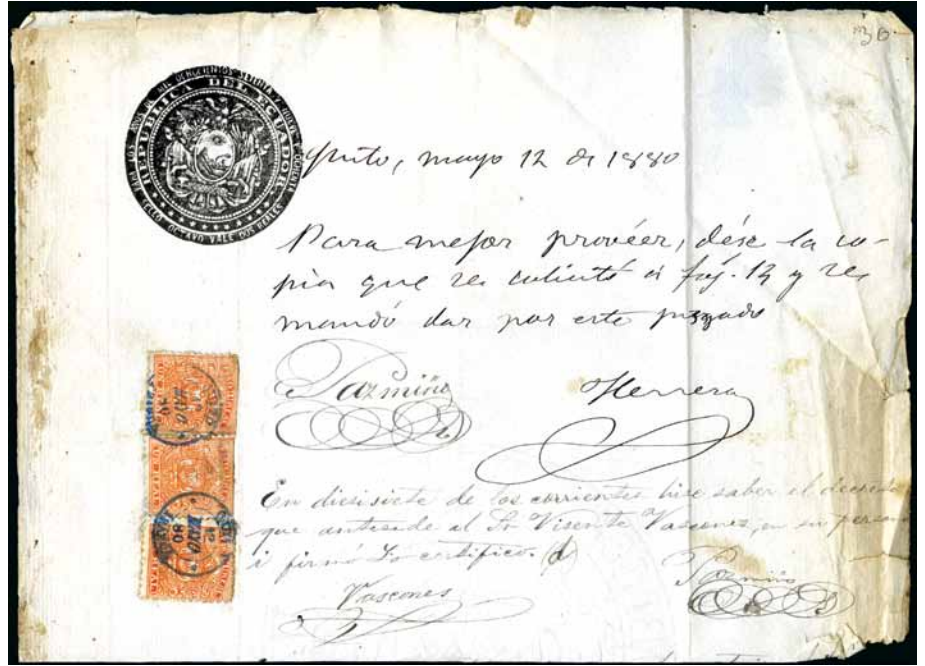 REPUBLICA DEL ECUADOR
SELLO OCTAVO VALE DOS REALES
Quito, mayo 12 de 1880
Para mejor provéer, dése la co-
pia que se solicitó á foj. 12 y se
mandó dar por este juzgado
Pazmiño
Herrera
En diesisiete de los corrientes hise saber el decreto
que antesede al Sr Visente Vascones, en su persona
i firmó Lo certifico.
Vascones
Pazmiño